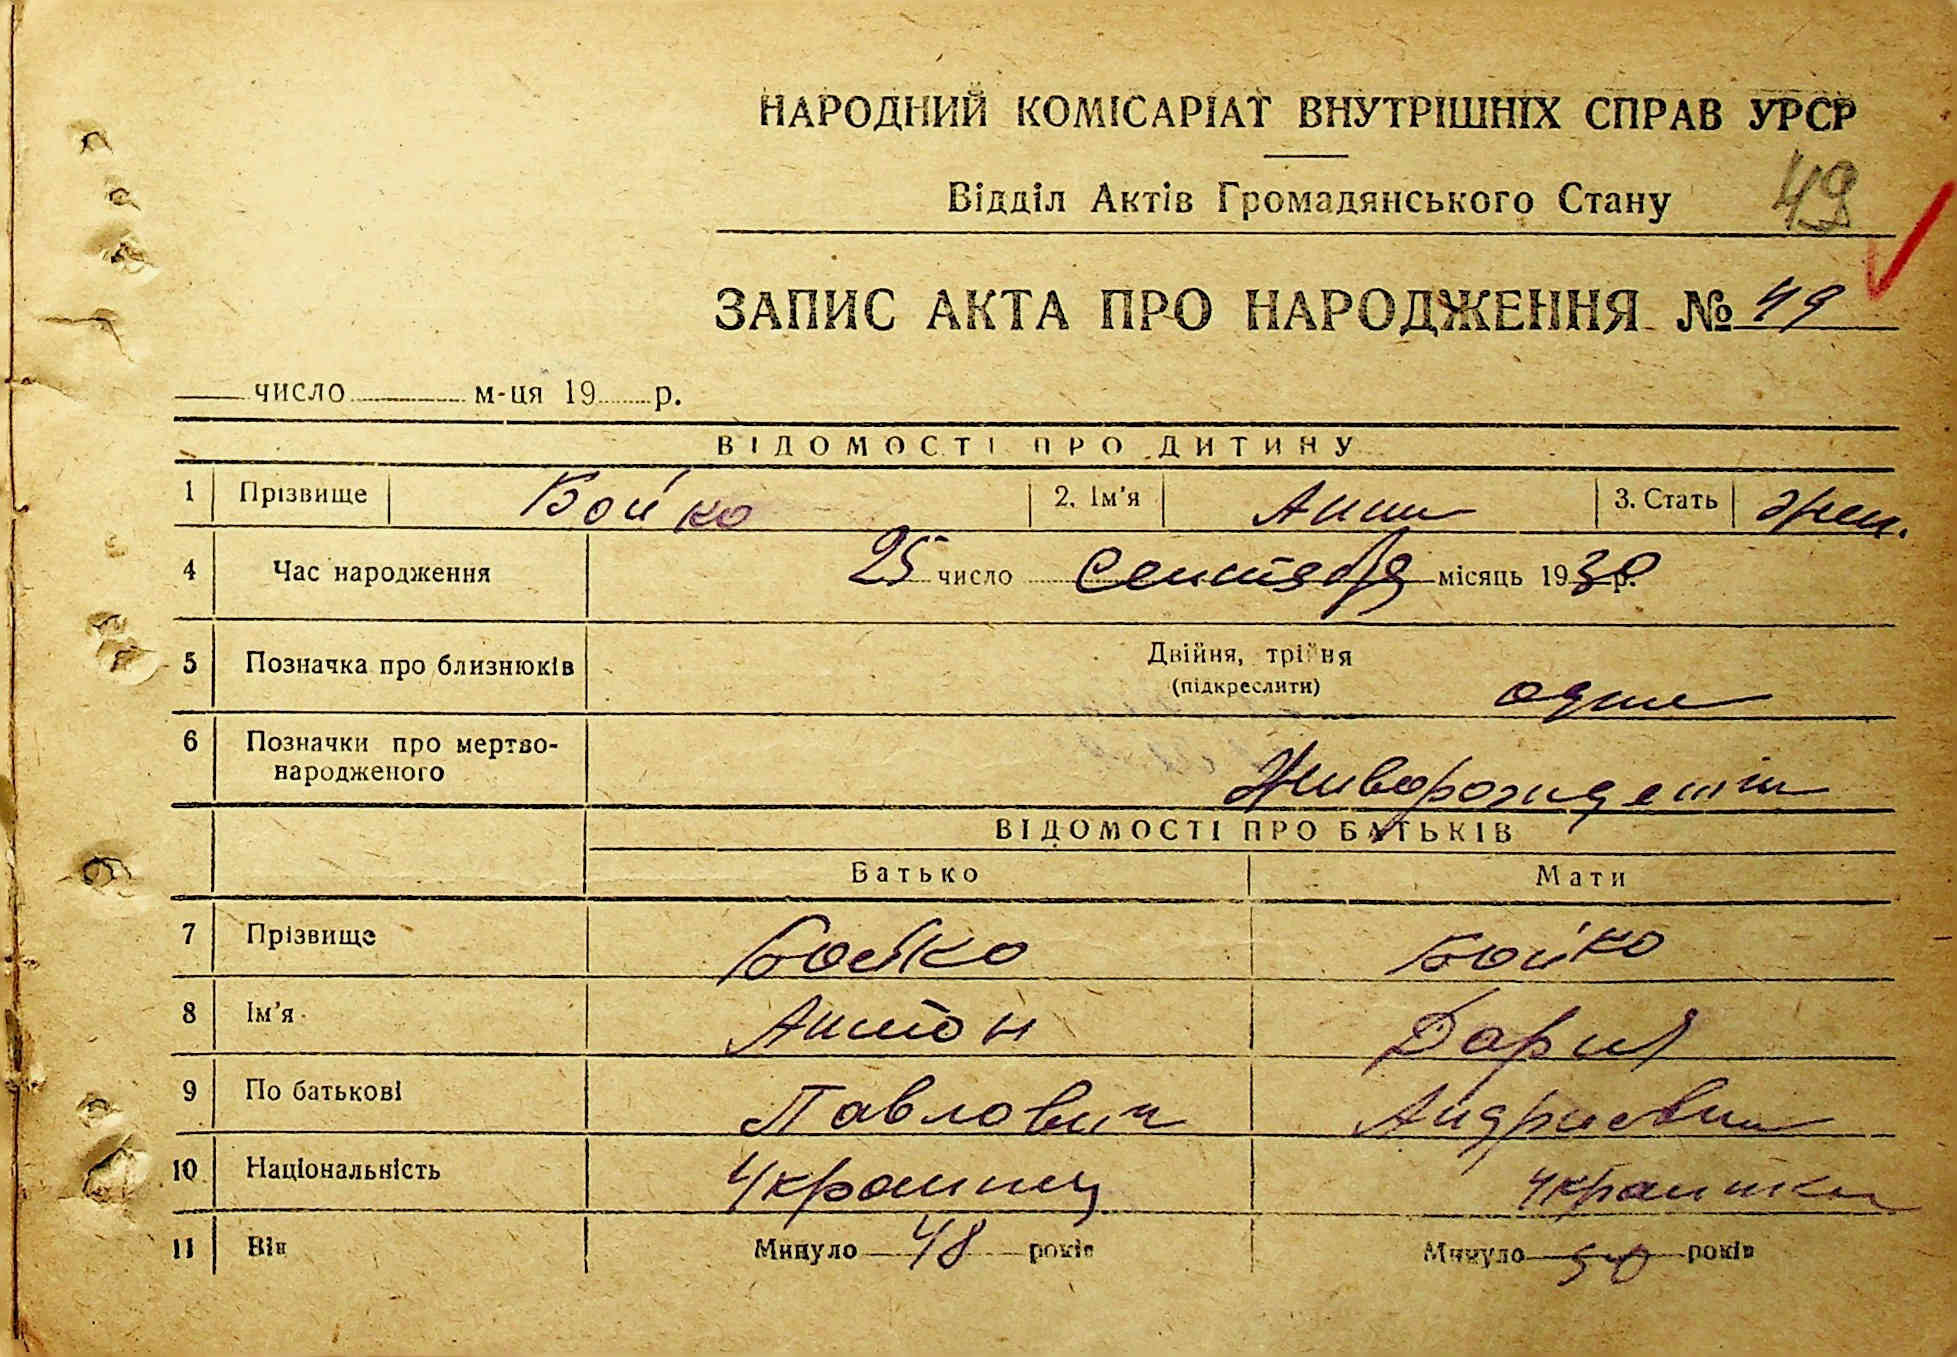 НАРОДНИЙ КОМІСАРІАТ ВНУТРІШНІХ СПРАВ УРСР
Відділ Актів Громадянського Стану 49
ЗАПИС АКТА ПРО НАРОДЖЕННЯ № 49
число м-ця 19 р.
ВІДОМОСТІ ПРО ДИТИНУ
1 Прізвище Бойко 2. Ім'я Анна 3. Стать жен.
4 Час народження 25 число Сентября місяць 1930 р.
5 Позначка про близнюків Двійня, трійня
(підкреслити) одна
6 Позначки про мертво-
народженого Живорожден
ВІДОМОСТІ ПРО БАТЬКІВ
Батько Мати
7 Прізвище Бойко Бойко
8 Ім'я Антон Дария
9 По батькові Павлович Андриевна
10 Національність Украинец Украинка
11 Вік Минуло 48 років Минуло років